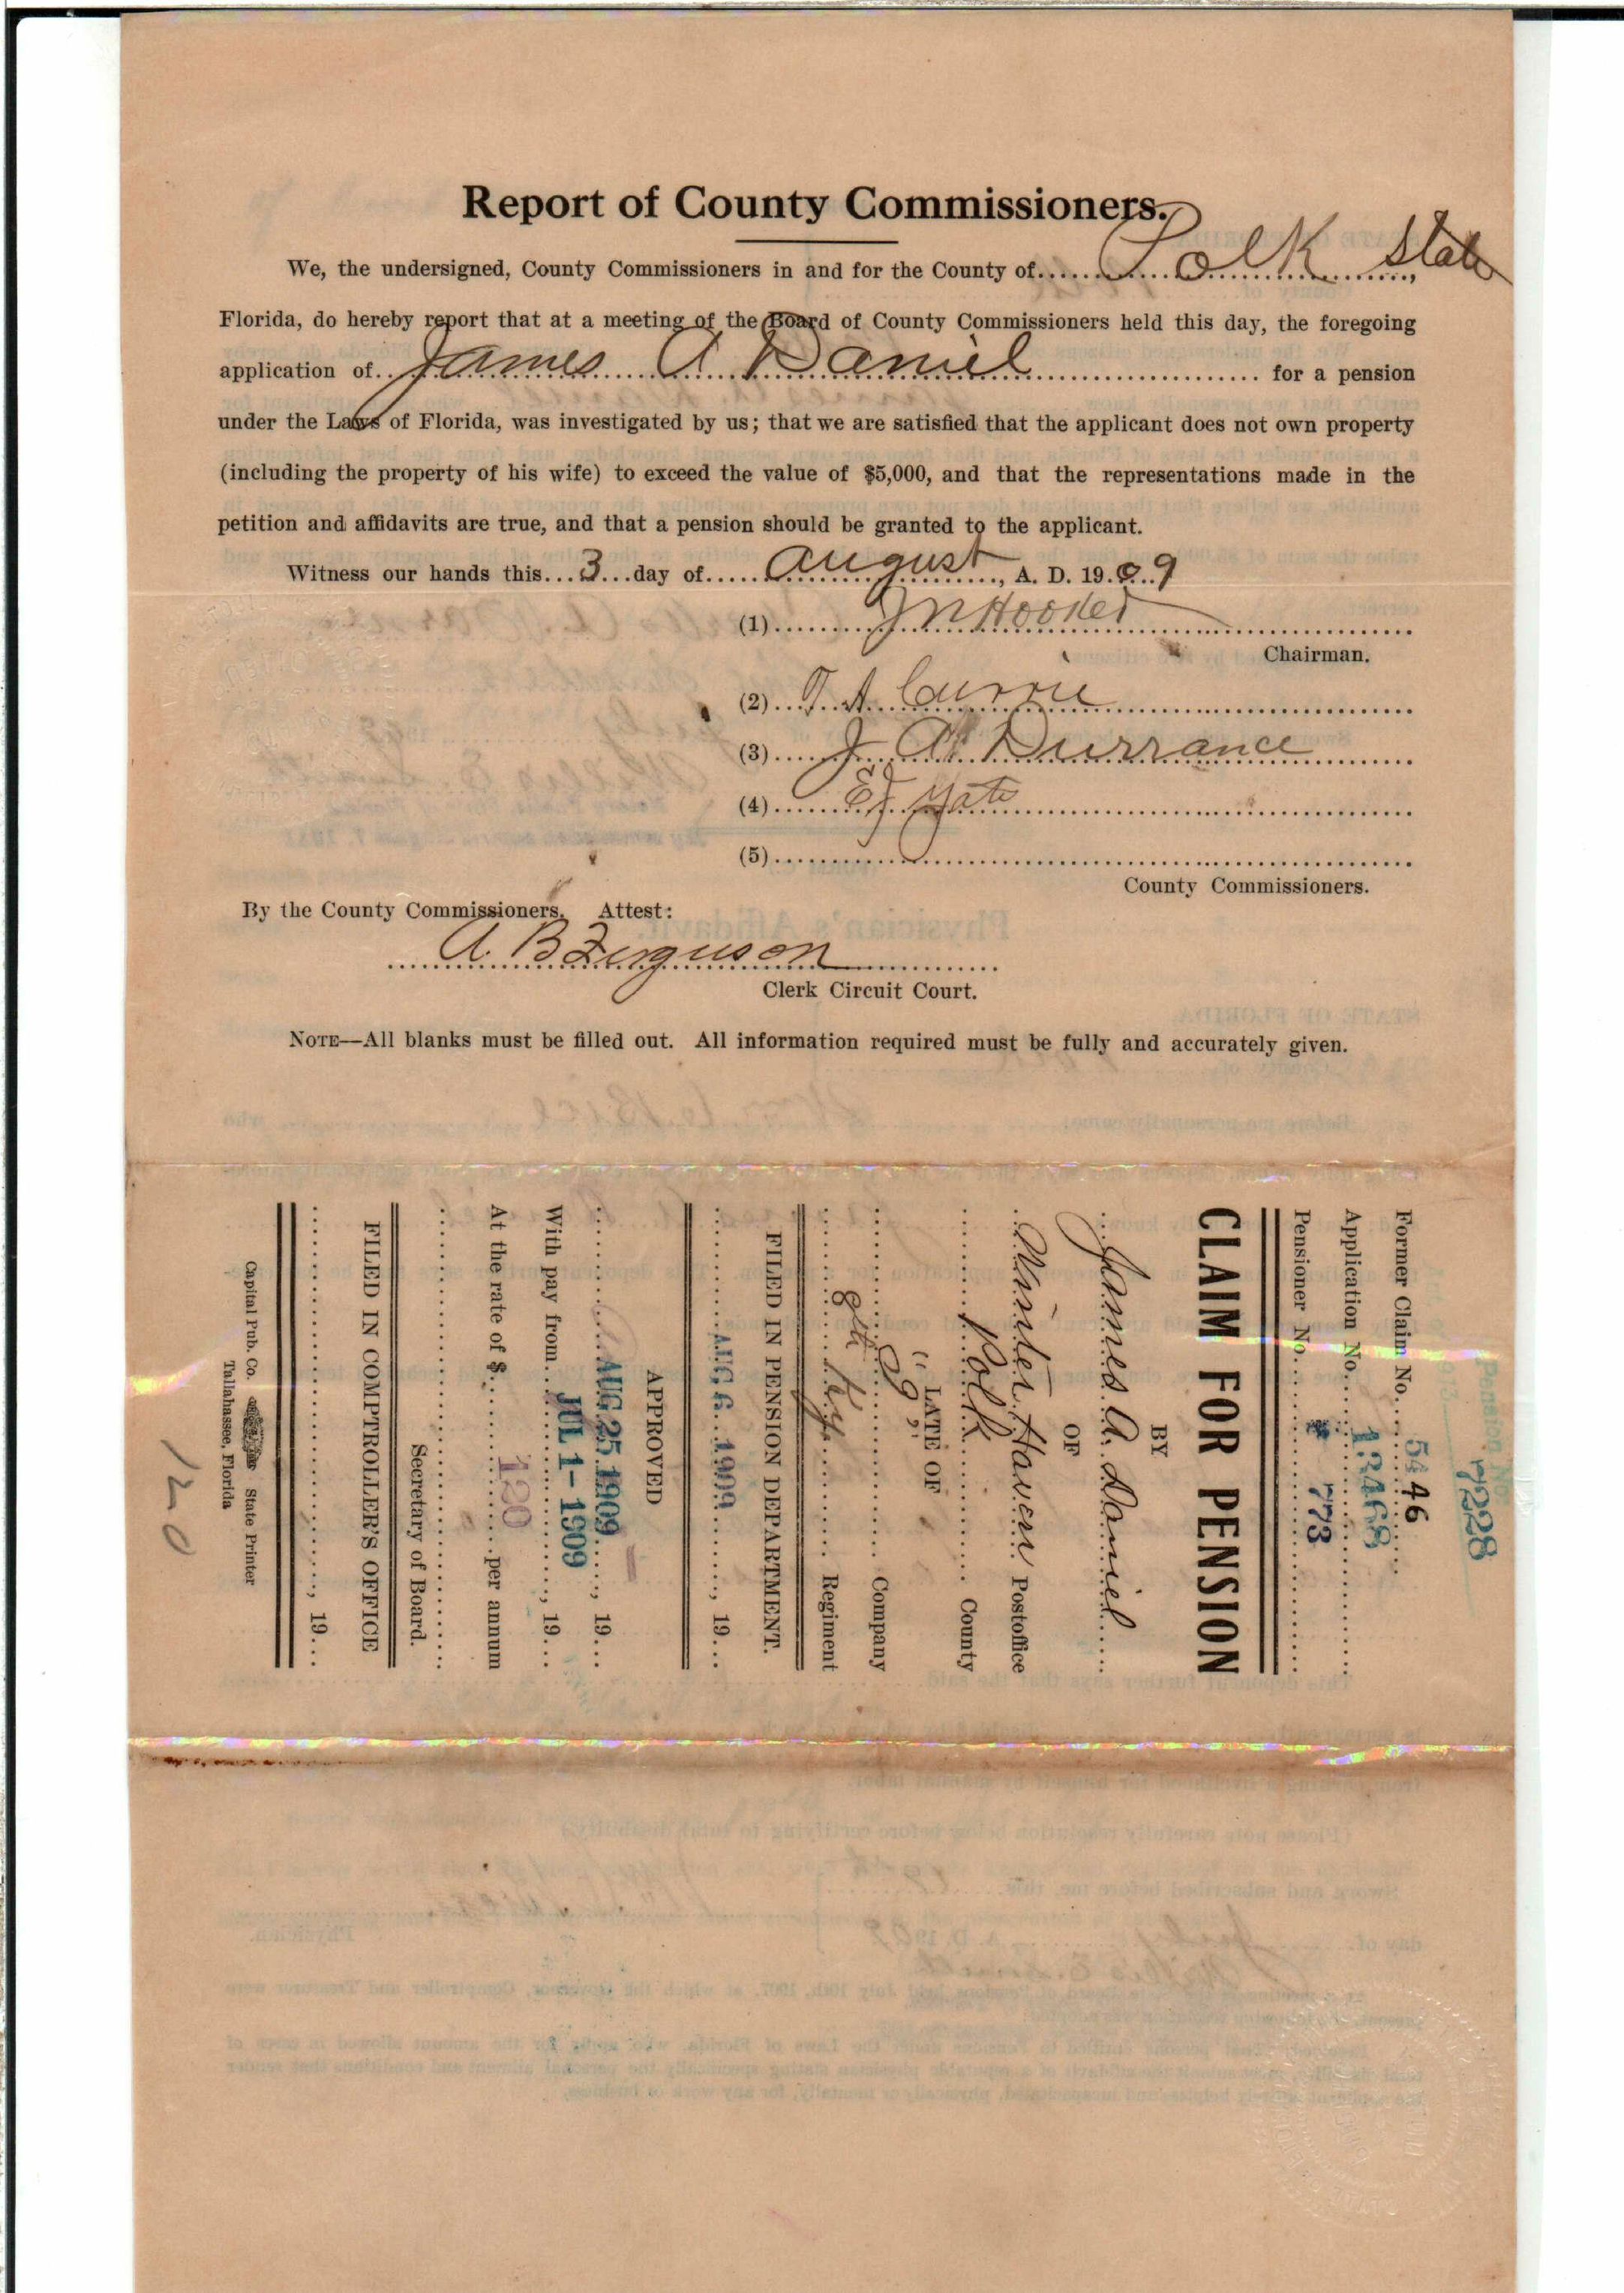 Report of County Commissioners.
We, the undersigned, County Commissioners in and for the County of Polk State,
Florida, do hereby report that at a meeting of the Board of County Commissioners held this day, the foregoing
application of James A Daniel for a pension
under the Laws of Florida, was investigated by us; that we are satisfied that the applicant does not own property
(including the property of his wife) to exceed the value of $5,000, and that the representations made in the
petition and affidavits are true, and that a pension should be granted to the applicant.
Witness our hands this 3 day of August, A. D. 1909
(1) J N Hooker
Chairman.
(2) T. A. Currie
(3) J A Durrance
(4) E J Yate
(5)
County Commissioners.
By the County Commissioners. Attest:
A. B Ferguson
Clerk Circuit Court.
NOTE—All blanks must be filled out. All information required must be fully and accurately given.
Pension No.
7228
Former Claim No. 5446
Application No. 13468
Pensioner No. 773
CLAIM FOR PENSION
BY
James A. Daniel
OF
Winter Haven Postoffice
Polk County
LATE OF
"G" Company
8th Ky. Regiment
FILED IN PENSION DEPARTMENT.
AUG 6 1909, 19
APPROVED
AUG 25 1909, 19
With pay from JUL 1-1909, 19
At the rate of $ 120 per annum
Secretary of Board.
FILED IN COMPTROLLER'S OFFICE
, 19
Capital Pub. Co. State Printer
Tallahassee, Florida
120